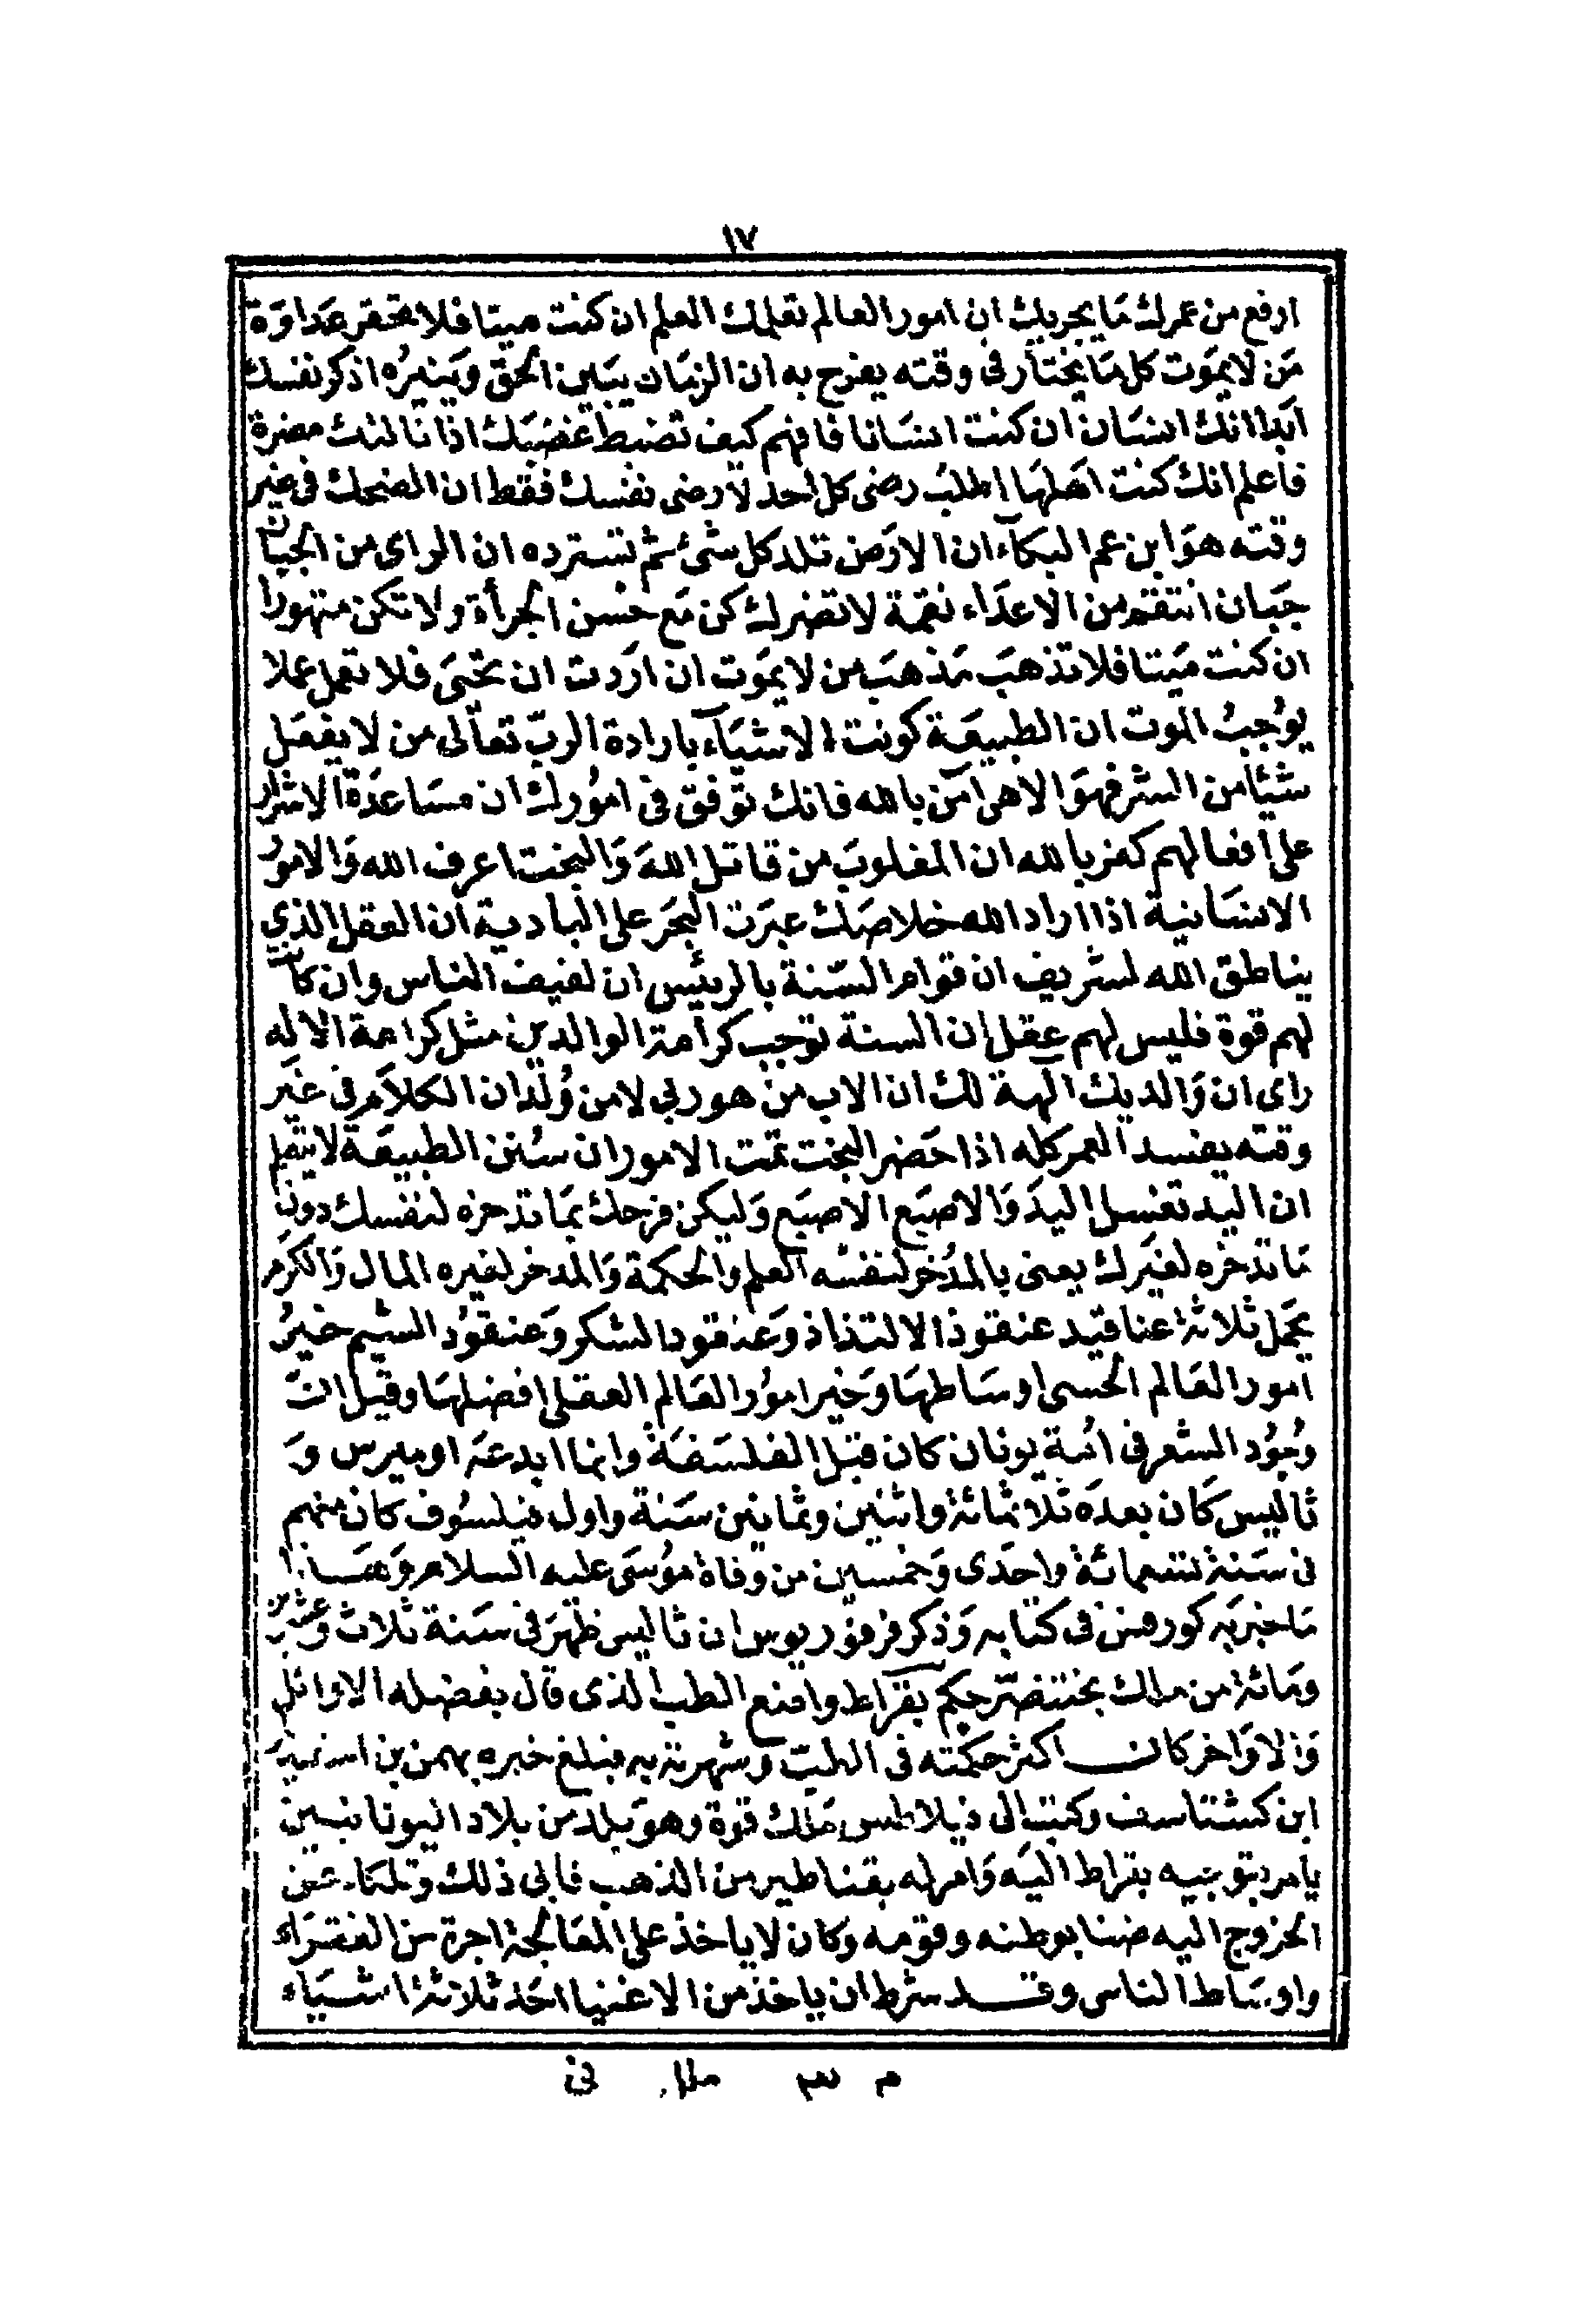 ١٧
ارفع من عمرك ما يجريك ان امور العالم تعلمك العلم ان كنت ميتا فلا تحقر عداوة
من لا يموت كل ما يختار في وقته يفرح به ان الزمان يبين الحق وينيره اذكر نفسك
ابدا انك انسان ان كنت انسانا فافهم كيف تضبط غضبك اذا نالتك مضرة
فاعلم انك كنت اهلها اطلب رضى كل احد لا رضى نفسك فقط ان الضحك في غير
وقته هو ابن عم البكاء ان الارض تلد كل شئ ثم تسترده ان الراى من الجبان
جبان انتقم من الاعداء نقمة لا تضرك كن مع حسن الجرأة ولا تكن متهورا
ان كنت ميتا فلا تذهب مذهب من لا يموت ان اردت ان تحيى فلا تعمل عملا
يوجب الموت ان الطبيعة كونت الاشياء بارادة الرب تعالى من لا يفعل
شيئا من الشر فهو الاهى آمن بالله فانك توفق في امورك ان مساعدة الاشرار
على افعالهم كفر بالله ان المغلوب من قاتل الله والبخت اعرف الله والامور
الانسانية اذا اراد الله خلاصك عبرت البحر على البادية ان العقل الذي
يناطق الله لشريف ان قوام السنة بالرئيس ان لفيف الناس وان كانت
لهم قوة فليس لهم عقل ان السنة توجب كرامة الوالدين مثل كرامة الاله
راى ان والديك آلهة لك ان الاب من هو ربي لا من ولد ان الكلام في غير
وقته يفسد العمر كله اذا حضر البخت تمت الامور ان سنن الطبيعة لا يتعلم
ان اليد تغسل اليد والاصبع الاصبع وليكن فرحك بما تدخره لنفسك دون
ما تدخره لغيرك يعنى بالمدخر لنفسه العلم والحكمة والمدخر لغيره المال والكرم
يحمل ثلاثة عناقيد عنقود الالتذاذ وعنقود السكر وعنقود الشيم خير
امور العالم الحسى اوساطها وخير امور العالم العقلى افضلها وقيل ان
وجود الشعر في امة يونان كان قبل الفلسفة وانما ابدعه اوميرس و
ثاليس كان بعده ثلاثمائة واثنين وثمانين سنة واول فيلسوف كان منهم
في سنة تسعمائة واحدى وخمسين من وفاة موسى عليه السلام وهذا
ما خبر به كورفس في كتابه وذكر فرفوريوس ان ثاليس ظهر في سنة ثلاث وعشرين
ومائة من ملك بختنصر حكم بقراط واضع الطب الذى قال بفضله الاوائل
والاواخر كان اكثر حكمته في الطب وشهرته به فبلغ خبره بهمن بن اسفنديار
ابن كشتاسف وكتب الى فيلاطس ملك قوة وهو بلد من بلاد اليونانيين
يأمر بتوجيه بقراط اليه وامر له بقناطير من الذهب فابى ذلك وتلكاء عن
الخروج اليه ضنا بوطنه وقومه وكان لا ياخذ على المعالجة اجرة من الفقراء
واوساط الناس وقد شرط ان ياخذ من الاغنيا احد ثلاثة اشياء
م ٣ ملل ني